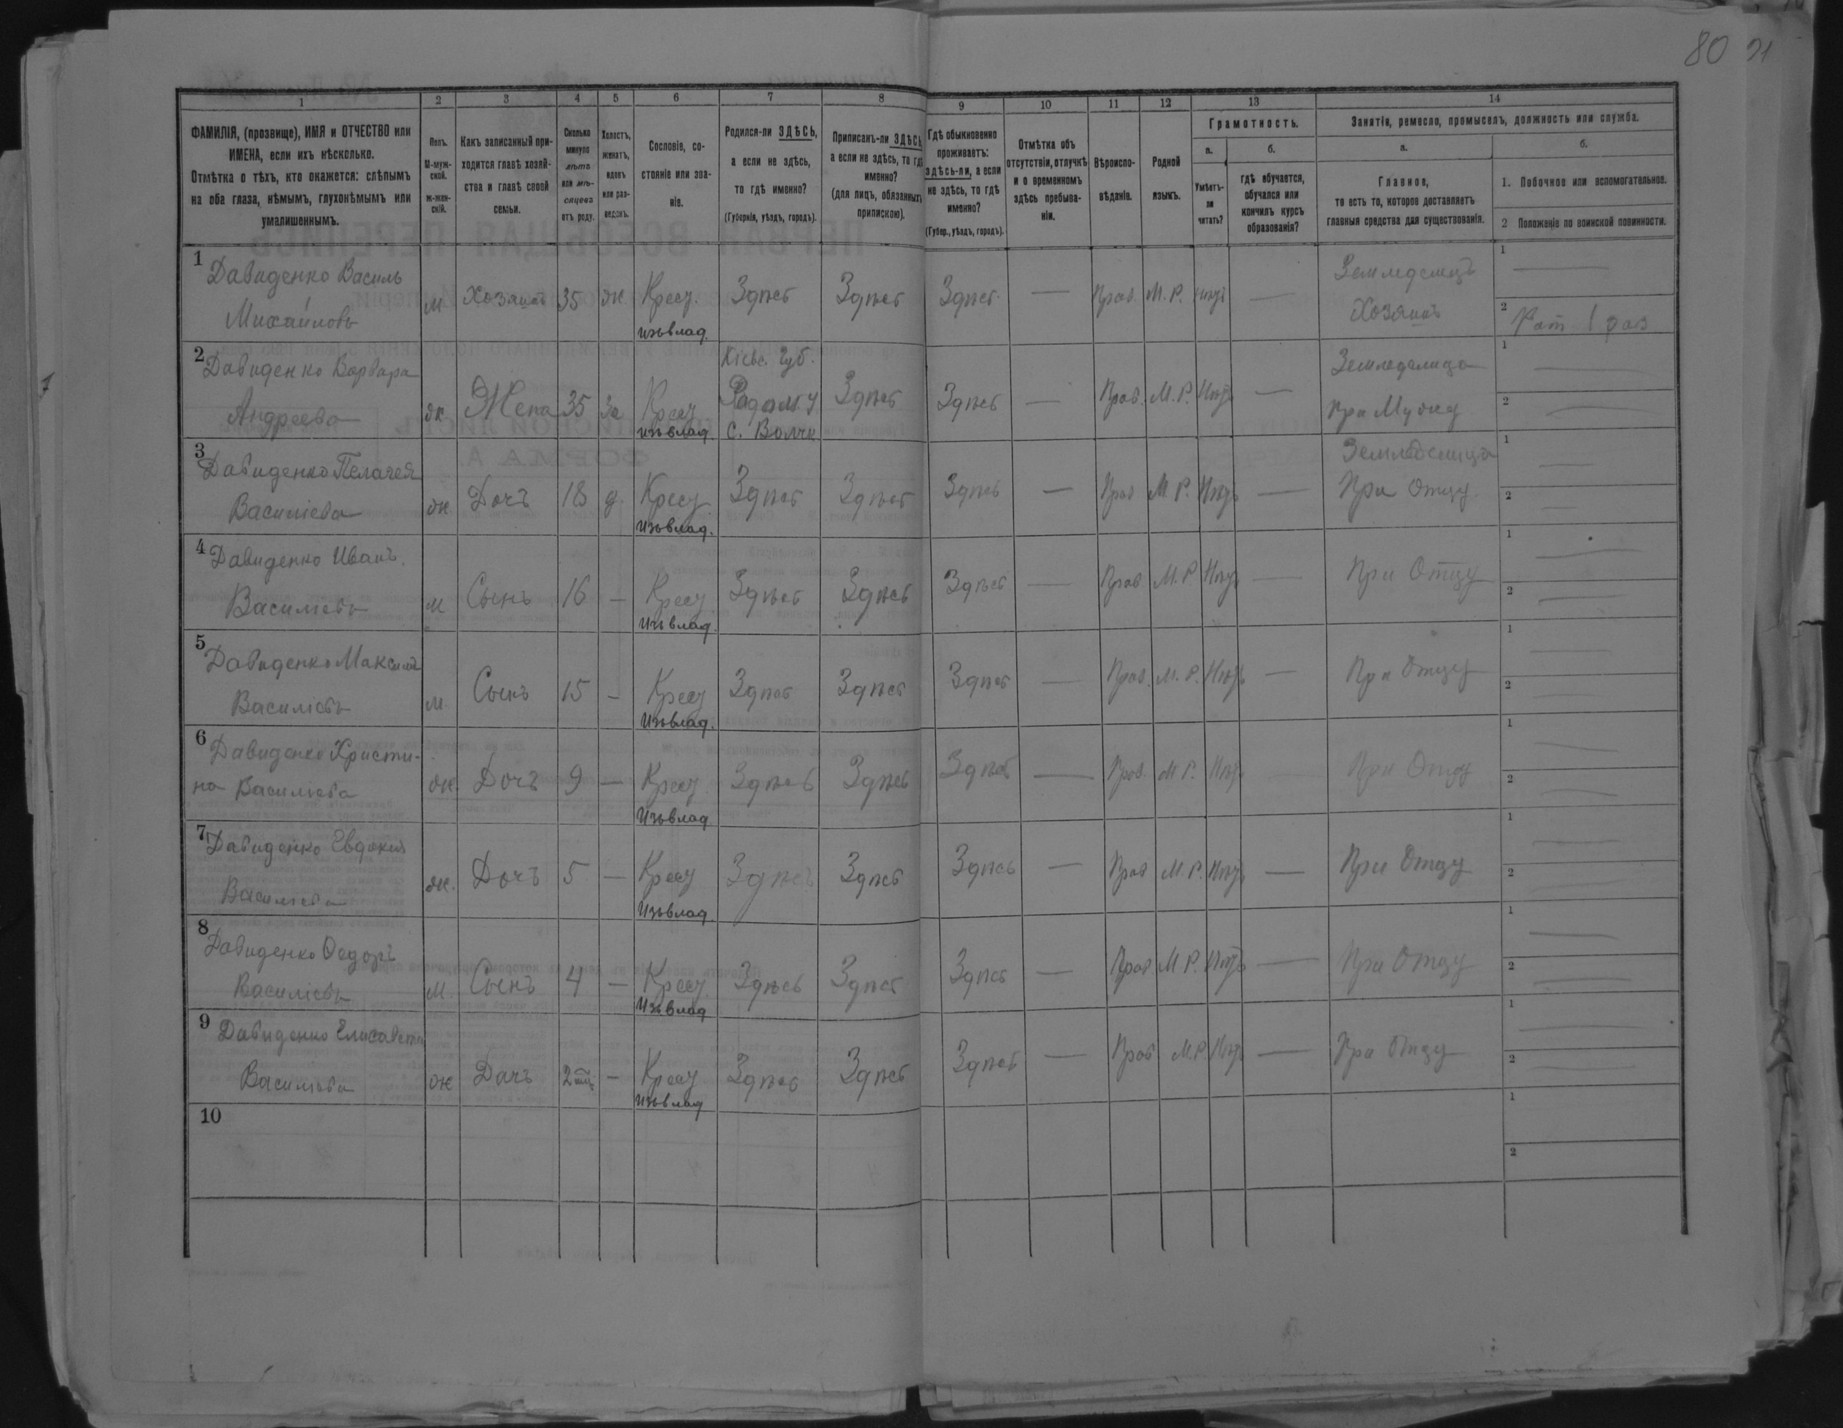 80 21
1
2
3
4
5
6
7
8
9
10
11
12
13
14
ФАМИЛІЯ, (прозвище), ИМЯ и ОТЧЕСТВО или
ИМЕНА, если ихъ нѣсколько.
Отмѣтка о тѣхъ, кто окажется: слѣпымъ
на оба глаза, нѣмымъ, глухонѣмымъ или
умалишеннымъ.
Полъ.
М-муж-
ской.
Ж-жен-
скій.
Какъ записанный при-
ходится главѣ хозяй-
ства и главѣ своей
семьи.
Сколько
минуло
лѣтъ
или мѣ-
сяцевъ
отъ роду.
Холостъ,
женатъ,
вдовъ
или раз-
веденъ.
Сословіе, со-
стояніе или зва-
ніе.
Родился-ли ЗДѢСЬ,
а если не здѣсь,
то гдѣ именно?
(Губернія, уѣздъ, городъ).
Приписанъ-ли ЗДѢСЬ,
а если не здѣсь, то гдѣ
именно?
(для лицъ, обязанныхъ
припискою).
Гдѣ обыкновенно
проживаетъ:
здѣсь-ли, а если
не здѣсь, то гдѣ
именно?
(Губер., уѣздъ, городъ).
Отмѣтка объ
отсутствіи, отлучкѣ
и о временномъ
здѣсь пребыва-
ніи.
Вѣроиспо-
вѣданіе.
Родной
языкъ.
Грамотность.
а.
Умѣетъ-
ли
читать?
б.
гдѣ обучается,
обучался или
кончилъ курсъ
образованія?
Занятія, ремесло, промыселъ, должность или служба.
а.
Главное,
то есть то, которое доставляетъ
главныя средства для существованія.
б.
1. Побочное или вспомогательное.
2 Положеніе по воинской повинности.
1
Давиденко Василь
Михайловъ
м
Хозяинъ
35
ж
Крест.
изъ влад.
Здѣсь
Здѣсь
Здѣсь
—
Прав.
М. Р.
Нѣтъ
—
Земледелецъ
Хозяинъ
1 —
2 Рат. 1 раз
2
Давиденко Варвара
Андреева
ж
Жена
35
За
Крест
изъ влад.
Кіевс. Губ.
Радом. у
Здѣсь
Здѣсь
—
Прав.
М. Р.
Нѣтъ
—
Земледелица
При Мужу
1 —
2 —
3
Давиденко Пелагея
Василіева
ж
Дочъ
18
д.
Крест
изъ влад.
Здѣсь
Здѣсь
Здѣсь
—
Прав
М Р.
Нѣтъ
—
Земледелица
При Отцу
1 —
2 —
4
Давиденко Иванъ
Василіевъ
м
Сынъ
16
—
Крест
изъ влад.
Здѣсь
Здѣсь
Здѣсь
—
Прав
М. Р
Нѣтъ
—
При Отцу
1 —
2 —
5
Давиденко Максимъ
Василіевъ
м
Сынъ
15
—
Крест
Изъ влад.
Здѣсь
Здѣсь
Здѣсь
—
Прав.
М. Р.
Нѣтъ
—
При Отцу
1 —
2 —
6
Давиденко Христи-
на Василіева
ж.
Дочъ
9
—
Крест
Изъ влад
Здѣсь
Здѣсь
Здѣсь
—
Прав.
М Р.
Нѣтъ
—
При Отцу
1 —
2 —
7
Давиденко Евдокия
Василіева
ж.
Дочъ
5
—
Крест
Изъ влад.
Здѣсь
Здѣсь
Здѣсь
—
Прав
М. Р.
Нѣтъ
—
При Отцу
1 —
2 —
8
Давиденко Федоръ
Василіевъ
м
Сынъ
4
—
Крест
Изъ влад
Здѣсь
Здѣсь
Здѣсь
—
Прав
М Р.
Нѣтъ
—
При Отцу
1 —
2 —
9
Давиденко Елисавета
Василіева
ж
Дочъ
—
Крест
изъ влад
Здѣсь
Здѣсь
Здѣсь
—
Прав
М. Р
Нѣтъ
—
При Отцу
1 —
2 —
10
1
2